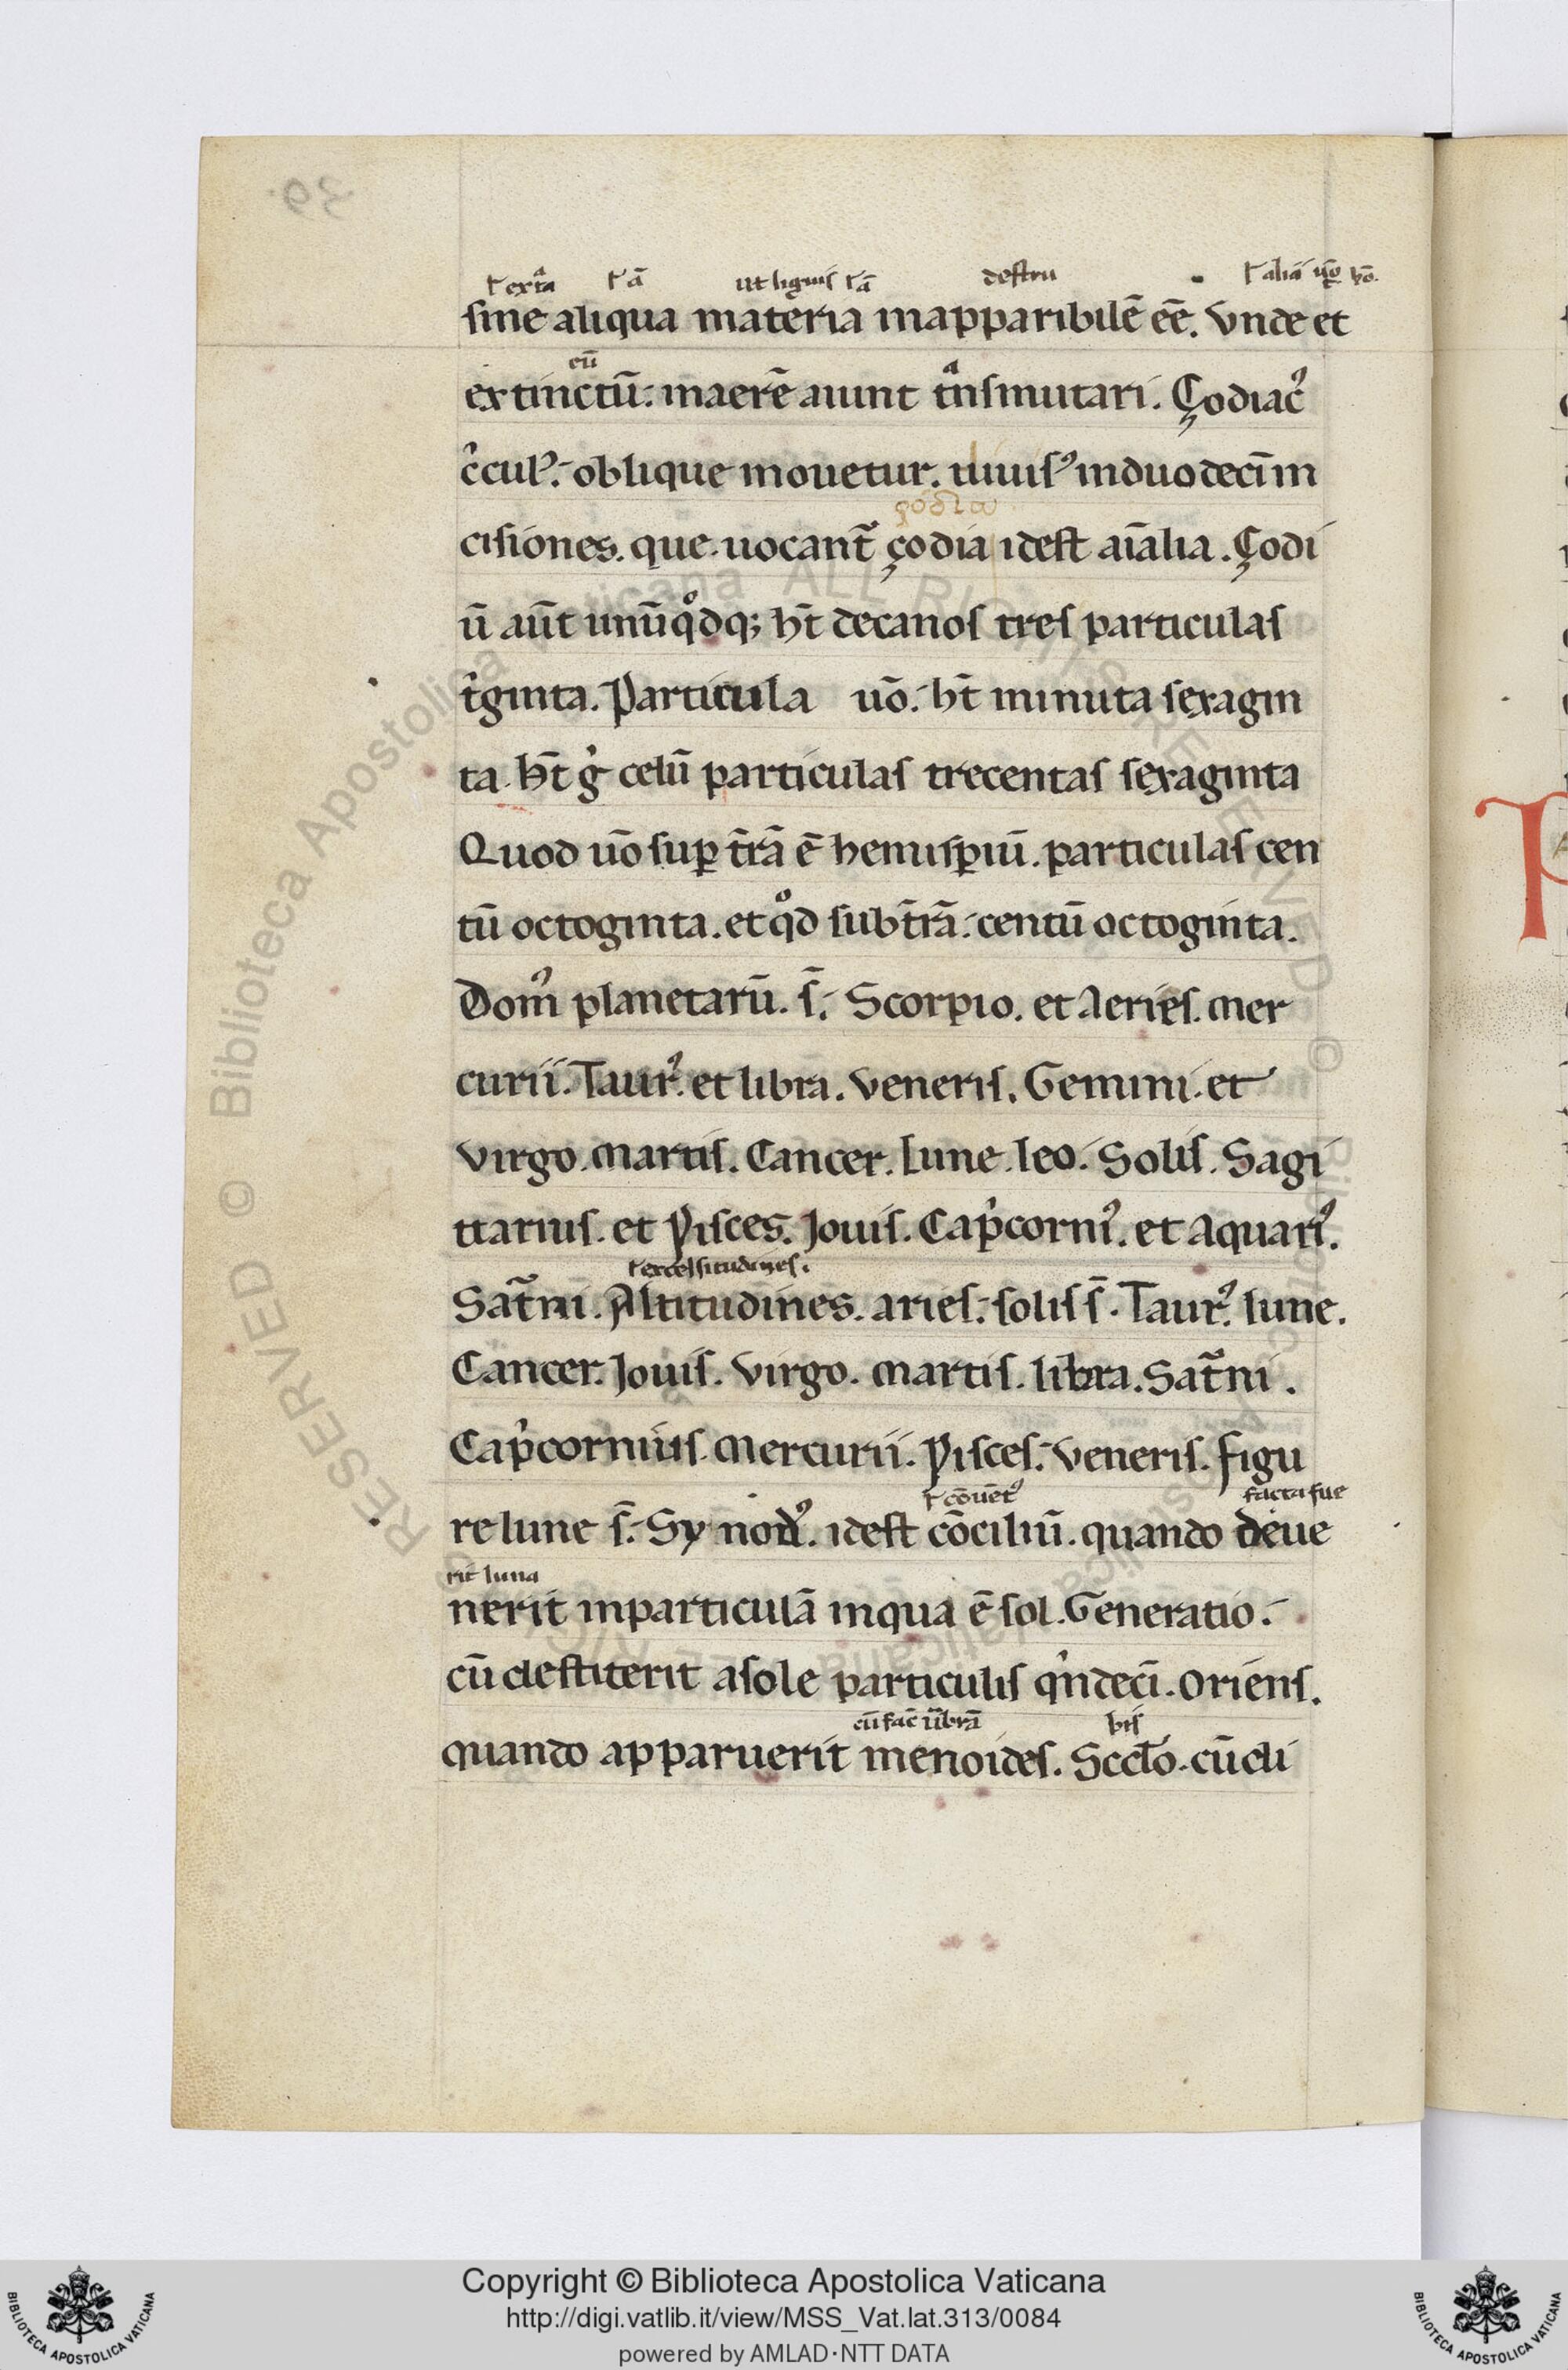 ł exᵃtᷓa ł ā ut lignis ł ā destru ł aliā uº hō.
sine aliqua materia inapparibilē eē. Vnde et
cū
extinctū: inaerē aiunt tᵃnsmutari. Çodiacꝰ
c̓culꝰ. oblique mouetur. diuisꝰ induodecīm
çódia
cisiones. que uocant᷑ çodia idest aīalia. Çodi
ū aūt unūqͦdq; hn̄t decanos tres particulas
t̓ginta. Particula uō. hn̄t minuta sexagin
ta. hn̄t g̓ celū particulas trecentas sexaginta
Quod uō suꝑ t̄rā ē hemisꝑiū. particulas cen
tū octoginta. et qͦd subt̄rā. centū octoginta.
Domꝰ planetarū. s̄. Scorpio. et Aeries. Mer
curii. Taurꝰ. et libra. Veneris. Gemini. et
Virgo. Martis. Cancer. Lune. leo. Solis. Sagi
ttarius. et Pisces. Jouis. Cap̓cornꝰ. et Aquarꝰ.
ł excelsitudines.
Sat᷑ni. Altitudines. aries. solis s̄. Taurꝰ. lune.
Cancer. Jouis. Virgo. Martis. libra. Sat᷑ni.
Cap̓cornius. Mercurii. Pisces. Veneris. figu
ł cōuētꝰ facta fue
re lune s̄. Sy nodꝰ. idest cōciliū. quando deue
rit luna
nerit inparticulā inqua ē sol. Generatio.
cū destiterit asole particulis q̓ndecī. Oriens.
cū fac̄ ūbrā bis
quando apparuerit menoides. Scc̄to. cū di
39
Copyright © Biblioteca Apostolica Vaticana
http://digi.vatlib.it/view/MSS_Vat.lat.313/0084
powered by AMLAD·NTT DATA
BIBLIOTECA APOSTOLICA VATICANA
BIBLIOTECA APOSTOLICA VATICANA